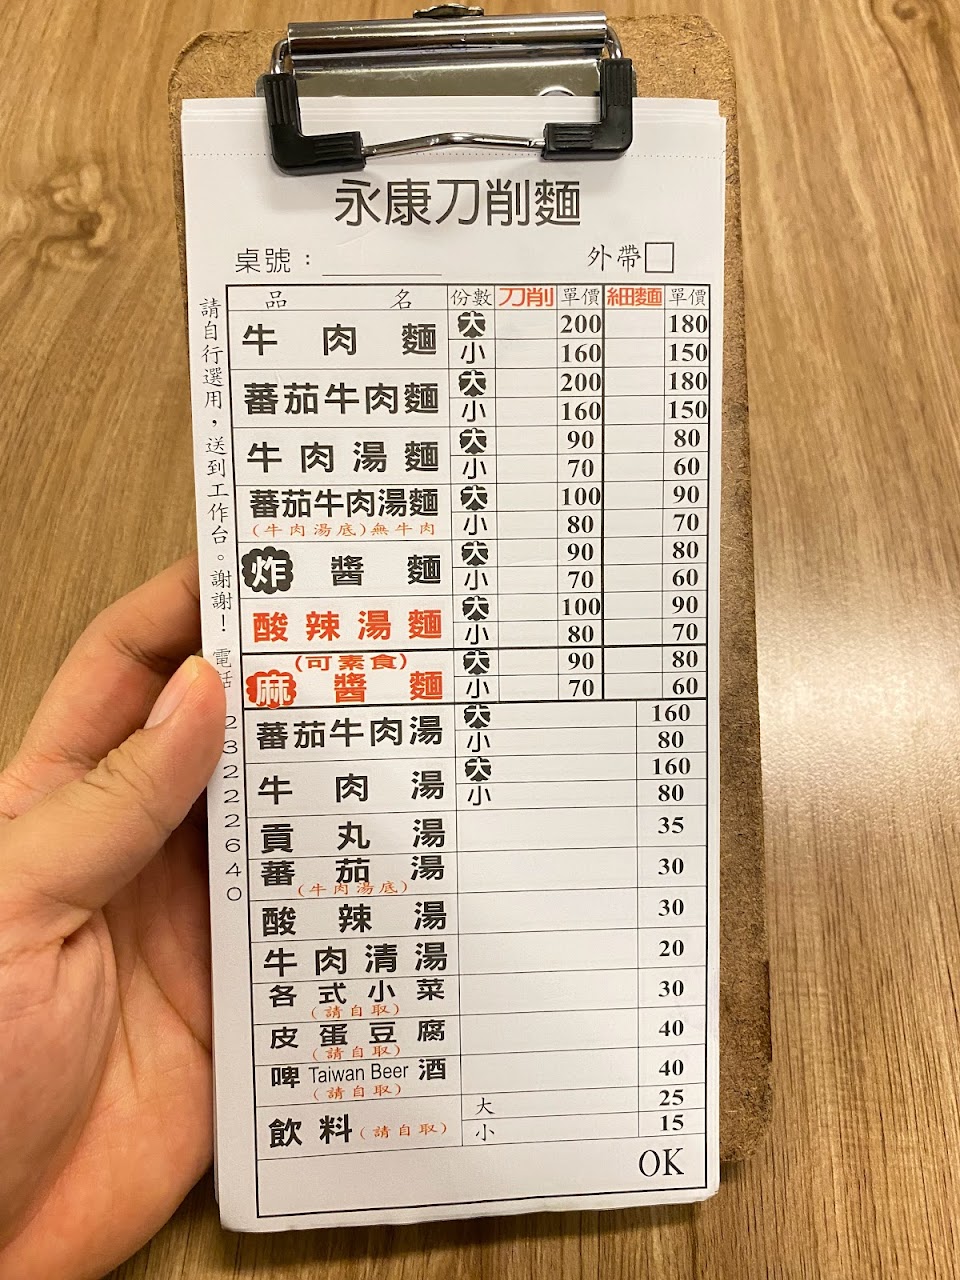 永康刀削麵
桌號： 外帶
品名 份數 刀削 單價 細麵 單價
牛肉麵 大 200 180
小 160 150
蕃茄牛肉麵 大 200 180
小 160 150
牛肉湯麵 大 90 80
小 70 60
蕃茄牛肉湯麵 大 100 90
(牛肉湯底)無牛肉 小 80 70
炸醬麵 大 90 80
小 70 60
酸辣湯麵 大 100 90
小 80 70
(可素食) 大 90 80
麻醬麵 小 70 60
蕃茄牛肉湯 大 160
小 80
牛肉湯 大 160
小 80
貢丸湯 35
蕃茄湯 30
(牛肉湯底)
酸辣湯 30
牛肉清湯 20
各式小菜 30
(請自取)
皮蛋豆腐 40
(請自取)
啤 Taiwan Beer 酒 40
(請自取)
飲料(請自取) 大 25
小 15
OK
請自行選用，送到工作台。謝謝！電話 23222640